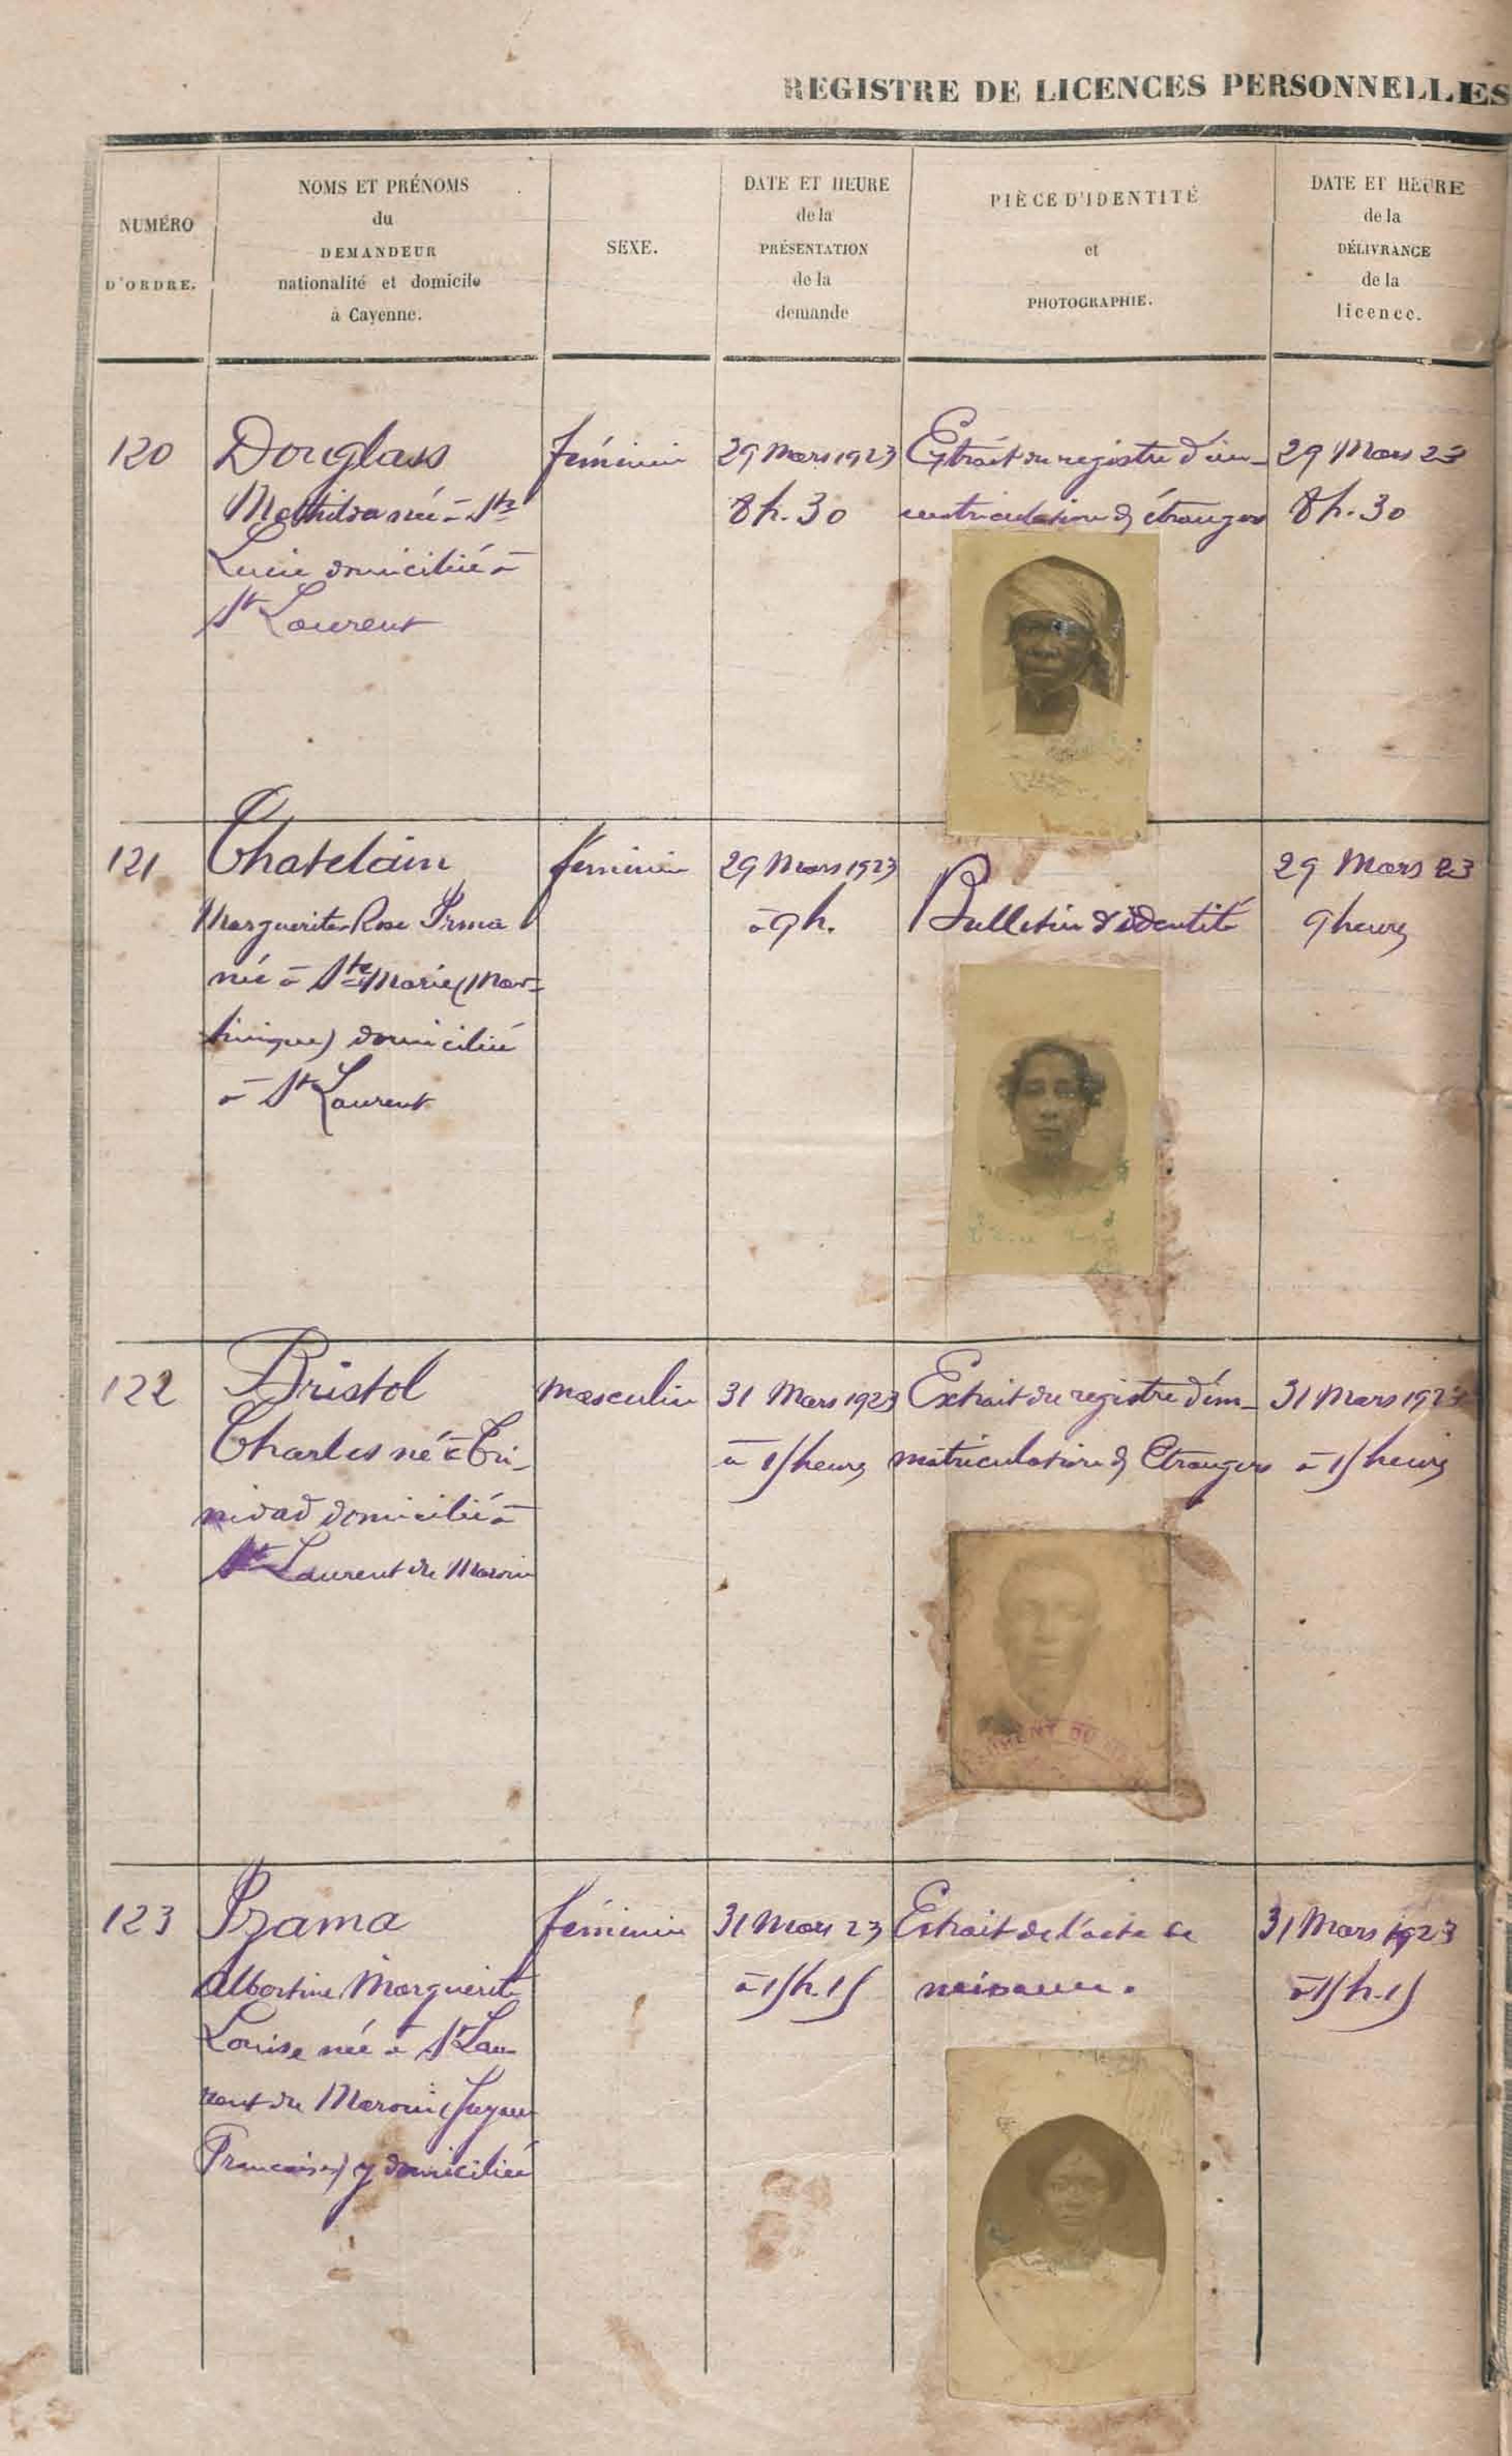 REGISTRE DE LICENCES PERSONNELLES
NUMÉRO
D'ORDRE.
NOMS ET PRÉNOMS
du
DEMANDEUR
nationalité et domicile
à Cayenne.
SEXE.
DATE ET HEURE
de la
PRÉSENTATION
de la
demande
PIÈCE D'IDENTITÉ
et
PHOTOGRAPHIE.
DATE ET HEURE
de la
DÉLIVRANCE
de la
licence.
120
Douglass
née à Ste
Lucie domiciliée à
St Laurent
féminin
29 Mars 1923
8 h. 30
Extrait du registre d'im-
matriculation d étrangers
29 Mars 23
8 h. 30
121
Chatelain
Marguerite Rose Irma
née à Ste Marie (Mar-
tinique) domiciliée
à St Laurent
féminin
29 Mars 1923
à 9 h.
Bulletin d'identité
29 Mars 23
9 heures
122
Bristol
Charles né à Tri-
nidad domicilié à
St Laurent du Maroni
masculin
31 Mars 1923
à 15 heures
Extrait du registre d'im-
matriculation d Etrangers
31 Mars 1923
à 15 heures
LAURENT DU MA
123
Izama
Albertine Marguerite
Louise née à St Lau-
rent du Maroni (Guyane
Française) y domiciliée
féminin
31 Mars 23
à 15 h. 15
Extrait de l'acte de
naissance.
31 Mars 1923
à 15 h. 15